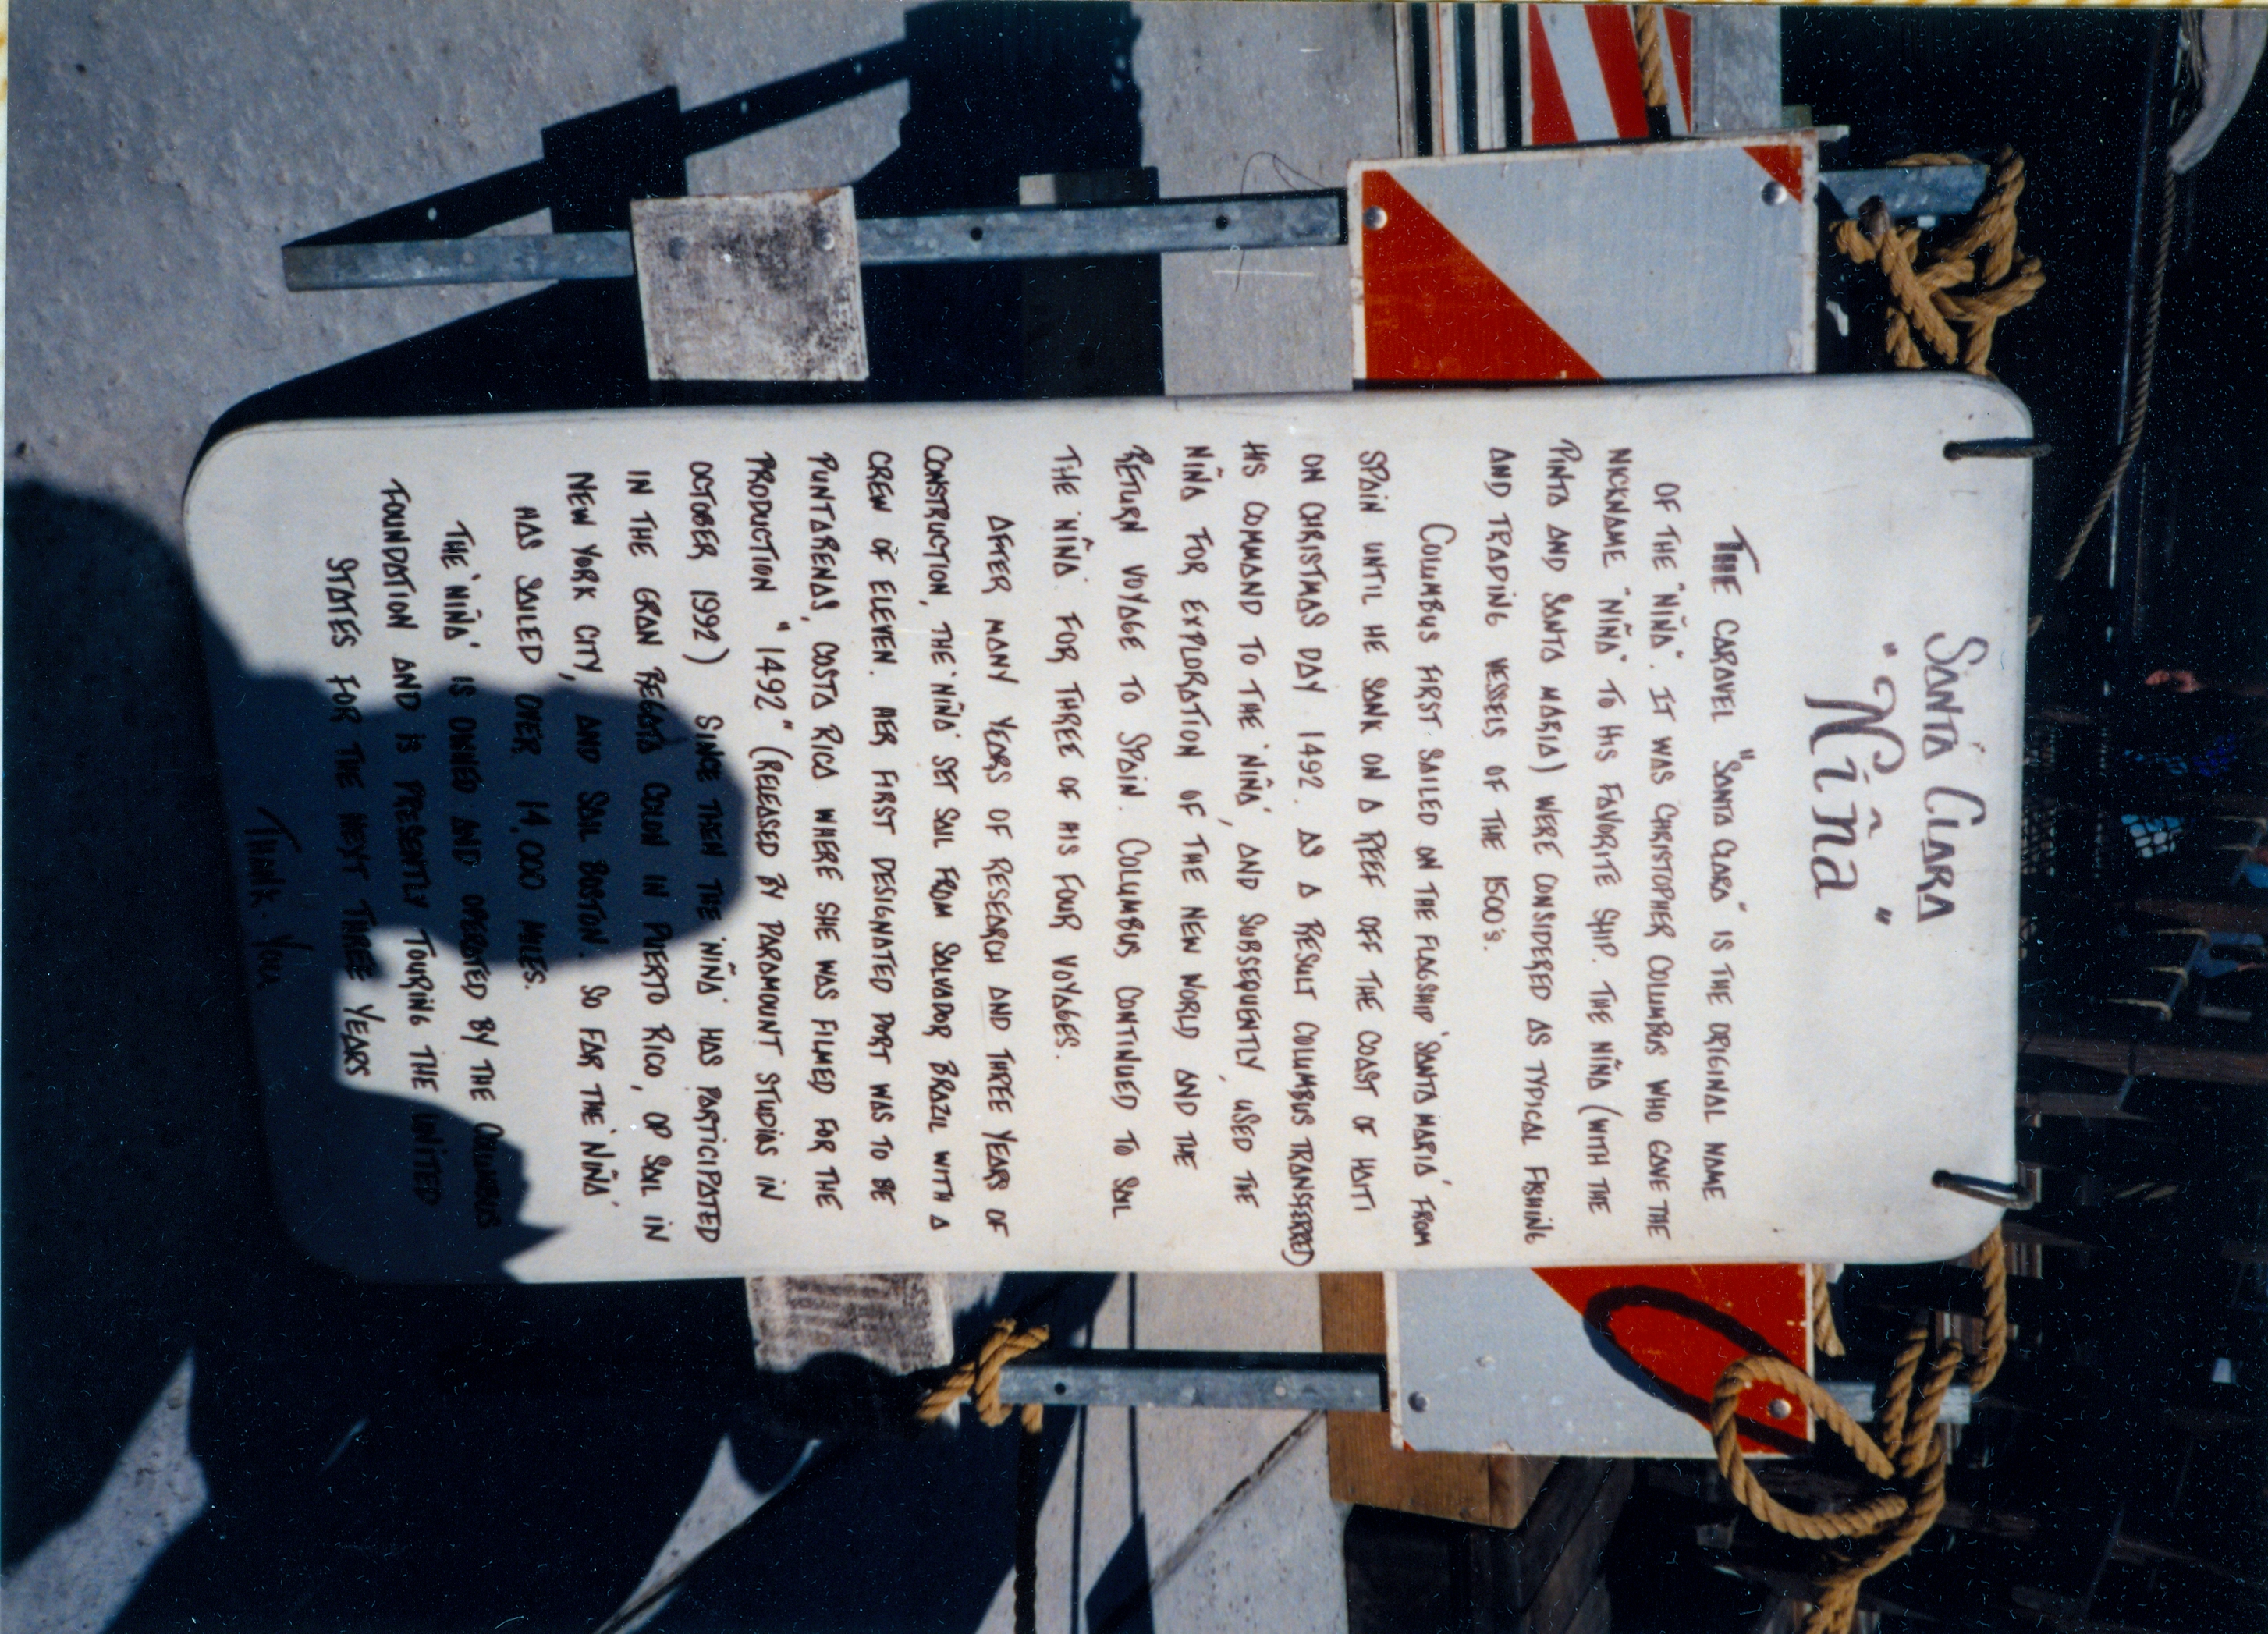 SANTA CLARA
"Niña"
THE CARAVEL "SANTA CLARA" IS THE ORIGINAL NAME
OF THE "NIÑA". IT WAS CHRISTOPHER COLUMBUS WHO GAVE THE
NICKNAME "NIÑA" TO HIS FAVORITE SHIP. THE NIÑA (WITH THE
PINTA AND SANTA MARIA) WERE CONSIDERED AS TYPICAL FISHING
AND TRADING VESSELS OF THE 1500's.
COLUMBUS FIRST SAILED ON THE FLAGSHIP 'SANTA MARIA' FROM
SPAIN UNTIL HE SANK ON A REEF OFF THE COAST OF HAITI
ON CHRISTMAS DAY 1492. AS A RESULT COLUMBUS TRANSFERRED
HIS COMMAND TO THE 'NIÑA', AND SUBSEQUENTLY, USED THE
NIÑA FOR EXPLORATION OF THE NEW WORLD AND THE
RETURN VOYAGE TO SPAIN. COLUMBUS CONTINUED TO SAIL
THE 'NIÑA' FOR THREE OF HIS FOUR VOYAGES.
AFTER MANY YEARS OF RESEARCH AND THREE YEARS OF
CONSTRUCTION, THE 'NIÑA' SET SAIL FROM SALVADOR BRAZIL WITH A
CREW OF ELEVEN. HER FIRST DESIGNATED PORT WAS TO BE
PUNTARENAS, COSTA RICA WHERE SHE WAS FILMED FOR THE
PRODUCTION "1492" (RELEASED BY PARAMOUNT STUDIOS IN
OCTOBER 1992) SINCE THEN THE 'NIÑA' HAS PARTICIPATED
IN THE GRAN REGATA COLON IN PUERTO RICO, OP SAIL IN
NEW YORK CITY, AND SAIL BOSTON. SO FAR THE 'NIÑA'
HAS SAILED OVER 14,000 MILES.
THE 'NIÑA' IS OWNED AND OPERATED BY THE COLUMBUS
FOUNDATION AND IS PRESENTLY TOURING THE UNITED
STATES FOR THE NEXT THREE YEARS
THANK-YOU